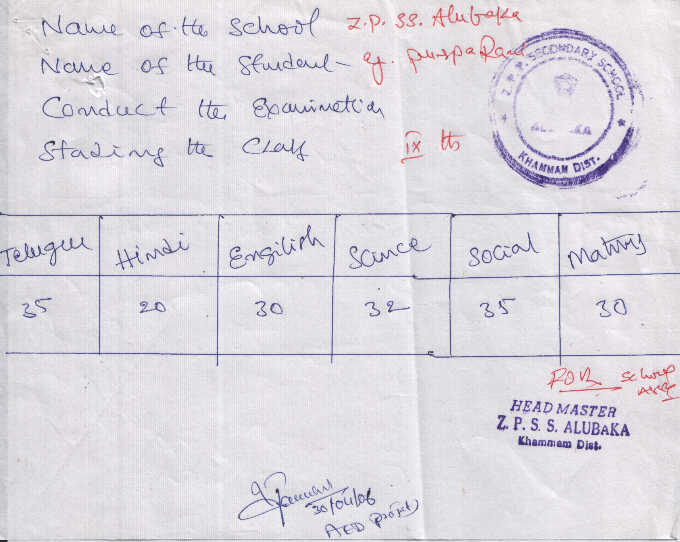 Name of the school Z.P. SS. Alubaka
Name of the Student - G. puspa Rani
Conduct the Examination
Stading the Class IX th
Z. P. P. SECONDARY SCHOOL
ALUBAKA
KHAMMAM DIST.
Telugu Hindi Engilish Science Social Maths
35 20 30 32 35 30
HEAD MASTER
Z. P. S. S. ALUBAKA
Khammam Dist.
30/04/06
AED